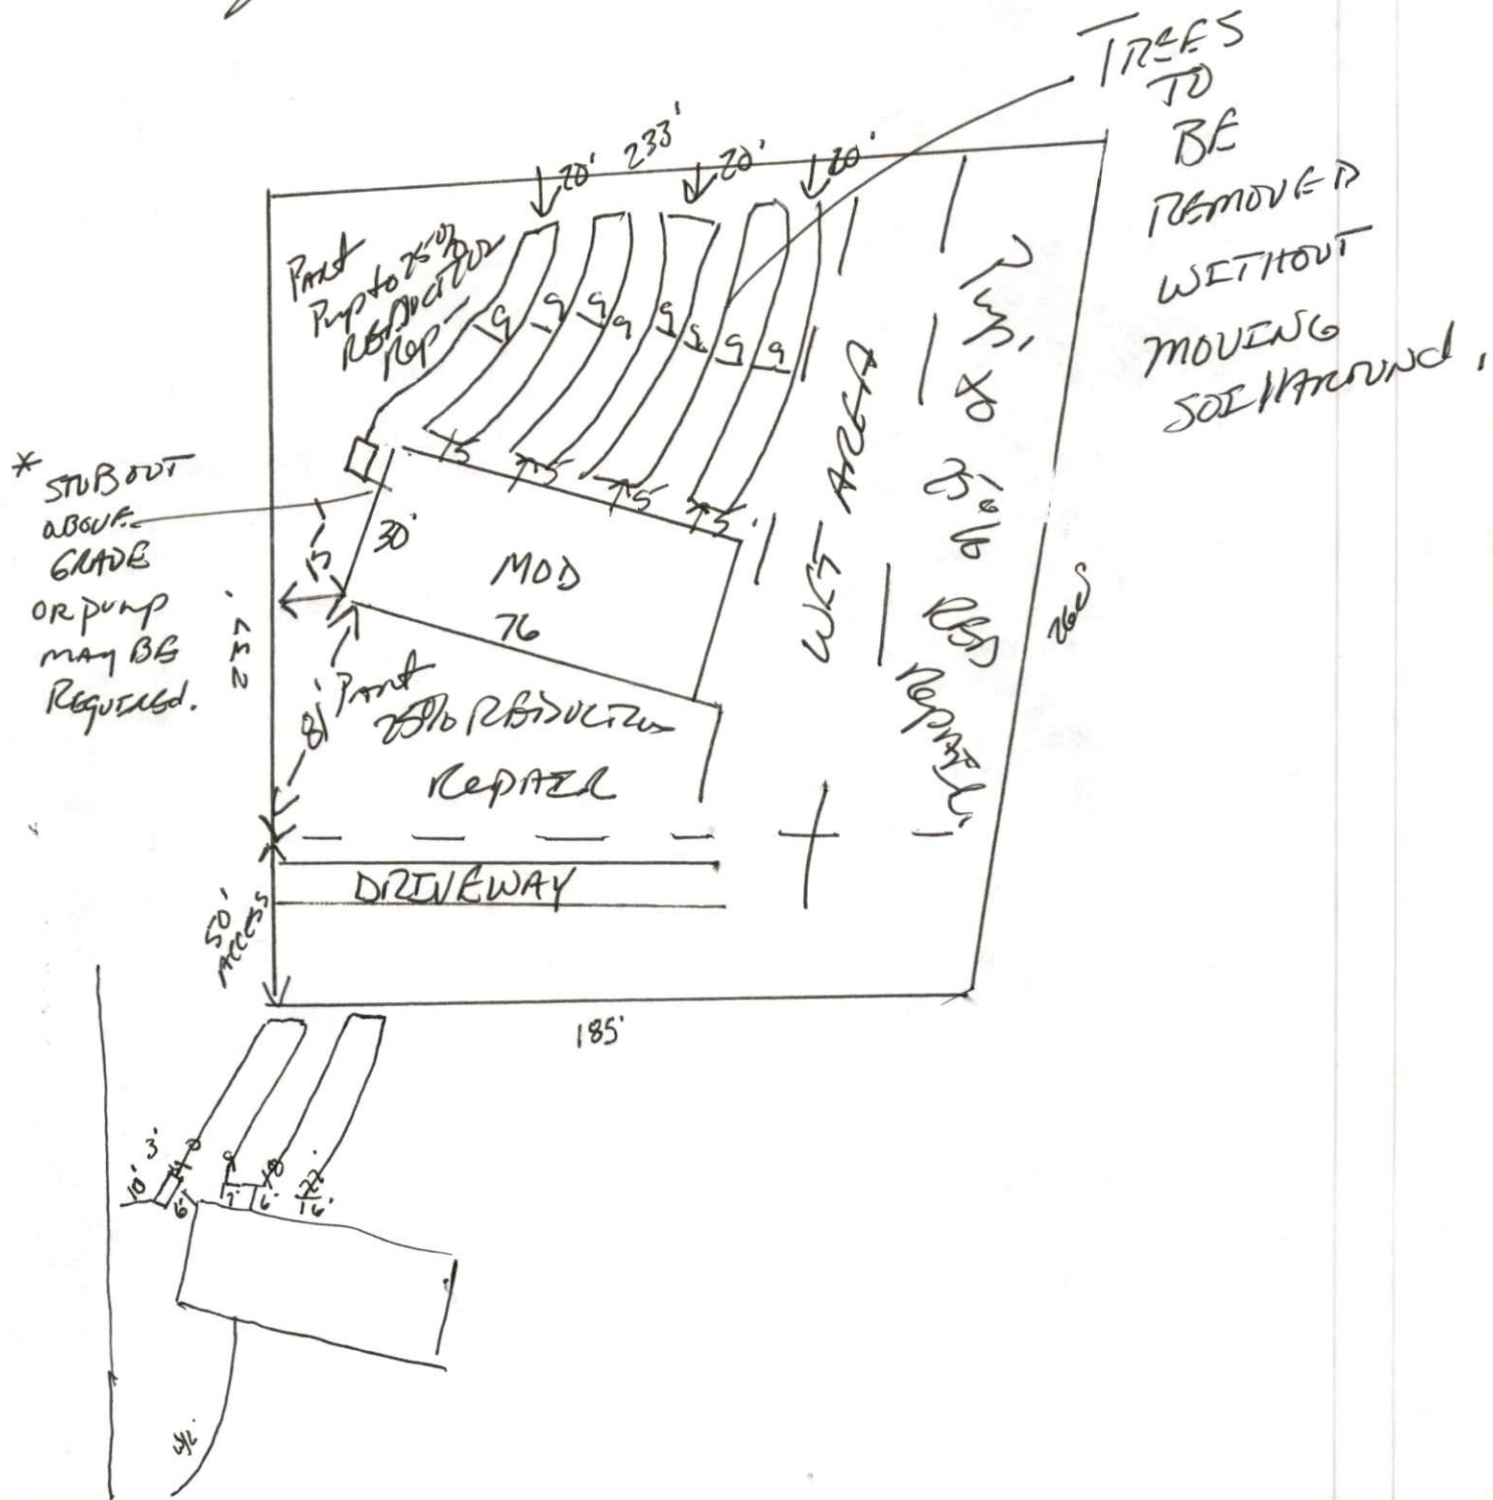 TREES
TO
BE
REMOVED
WITHOUT
MOVING
SOIL AROUND.
233'
20'
20'
20'
Part
Pump to 25%
REDUCTION
Rep
9
9
9
9
9
9
9
9
5
5
5
5'
WET AREA
25%
RED
Repair.
* STUB OUT
ABOVE
GRADE
OR pump
MAY BE
REQUIRED.
30'
MOD
76
15'
237'
81'
Part
25% REDUCTION
RepAIR
DRIVEWAY
50'
ACCESS
185'
10'
3'
0
6'
9
7'
18
6'
16'